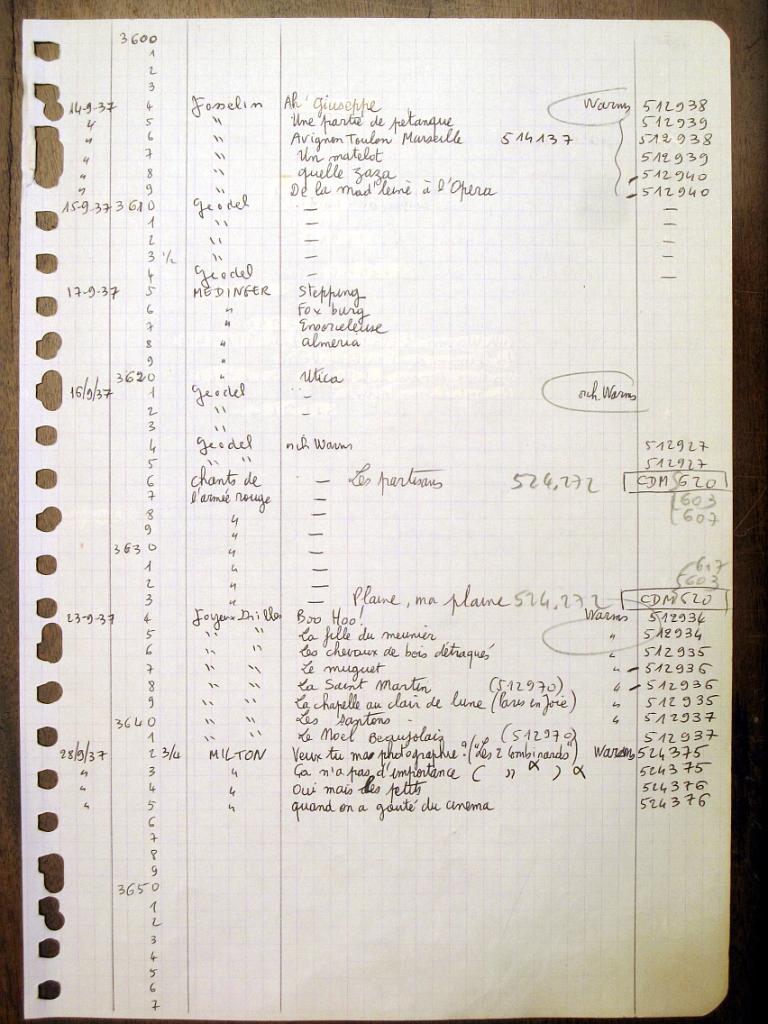 3600
1
2
3
14-9-37 4 Josselin Ah' Giuseppe Warms 512938
" 5 " Une partie de pétanque 512939
" 6 " Avignon Toulon Marseille 514137 512938
" 7 " Un matelot 512939
" 8 " quelle zaza 512940
" 9 " De la mad'leine à l'Opera 512940
15-9-37 3610 Geodel — —
1 " — —
2 " — —
3 1/2 " — —
4 Geodel — —
17-9-37 5 MEDINGER Stepping
6 " Fox burg
7 " Ensorceleuse
8 " almeria
9 "
3620 " Utica
16/9/37 1 Geodel — orch. Warms
2 " —
3 "
4 Geodel orch Warms 512927
5 " " 512927
6 chants de — Les partisans 524.272 CDM 520
7 l'armée rouge — 603
8 " — 607
9 " —
3630 " —
1 " — 617
2 " — 603
3 " — Plaine, ma plaine 524,272 CDM 520
23-9-37 4 Joyeux Drilles Boo Hoo! Warms 512934
5 " " La fille du meunier " 512934
6 " " Les chevaux de bois détraqués 512935
7 " " Le muguet " 512936
8 " " La Saint Martin (512970) " 512936
9 " " La chapelle au clair de lune (Paris en Joie) " 512935
3640 " " Les santons " 512937
1 " " Le Noel Beaujolais (512970) 512937
28/9/37 2 3/4 MILTON Veux tu ma photographie? ("Les 2 Combinards") Warms 524375
" 3 " Ca n'a pas d'importance ( " α ) α 524375
" 4 " Oui mais les petits 524376
" 5 " quand on a gouté du cinema 524376
6
7
8
9
3650
1
2
3
4
5
6
7